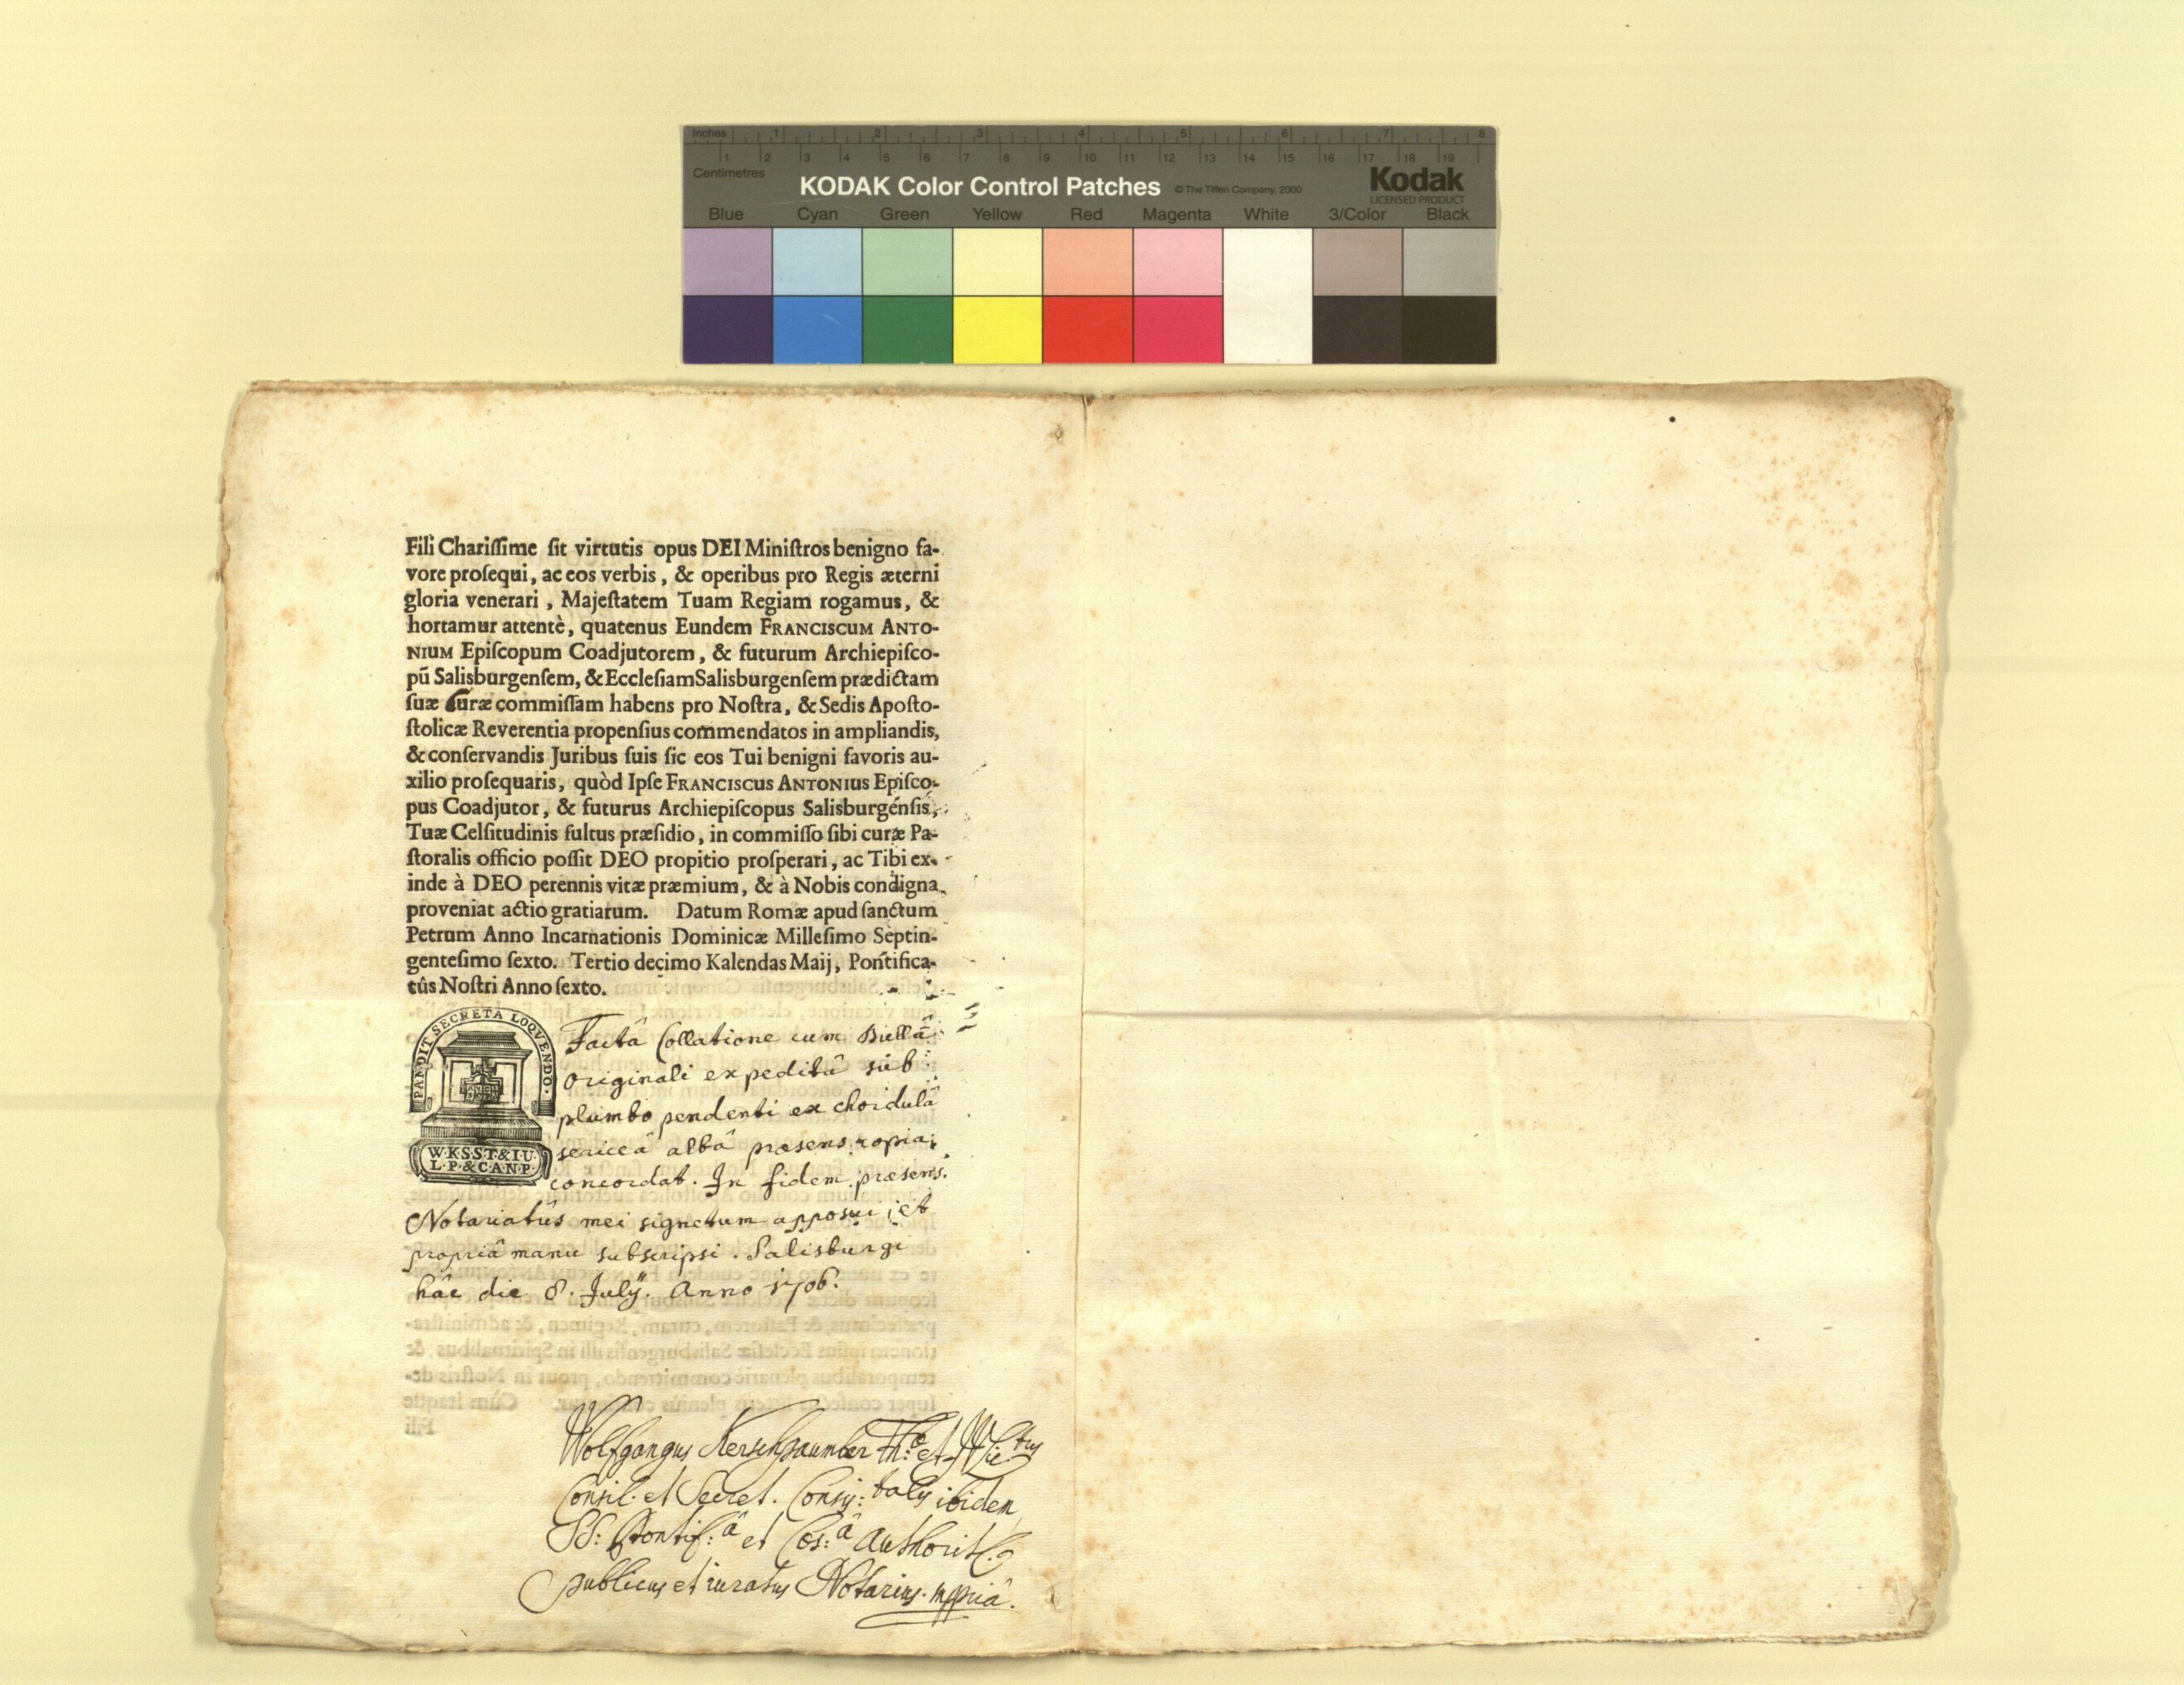 Inches 1 2 3 4 5 6 7 8
1 2 3 4 5 6 7 8 9 10 11 12 13 14 15 16 17 18 19
Centimetres
KODAK Color Control Patches © The Tiffen Company, 2000 Kodak
LICENSED PRODUCT
Blue Cyan Green Yellow Red Magenta White 3/Color Black
Fili Chariſſime ſit virtutis opus DEI Miniſtros benigno fa-
vore proſequi, ac eos verbis, & operibus pro Regis æterni
gloria venerari, Majeſtatem Tuam Regiam rogamus, &
hortamur attentè, quatenus Eundem FRANCISCUM ANTO-
NIUM Epiſcopum Coadjutorem, & futurum Archiepiſco-
pū Salisburgenſem, & Eccleſiam Salisburgenſem prædictam
ſuæ Curæ commiſſam habens pro Noſtra, & Sedis Apoſto-
ſtolicæ Reverentia propenſius commendatos in ampliandis,
& conſervandis Juribus ſuis ſic eos Tui benigni favoris au-
xilio proſequaris, quòd Ipſe FRANCISCUS ANTONIUS Epiſco-
pus Coadjutor, & futurus Archiepiſcopus Salisburgenſis,
Tuæ Celſitudinis fultus præſidio, in commiſſo ſibi curæ Pa-
ſtoralis officio poſſit DEO propitio proſperari, ac Tibi ex-
inde à DEO perennis vitæ præmium, & à Nobis condigna
proveniat actio gratiarum. Datum Romæ apud ſanctum
Petrum Anno Incarnationis Dominicæ Milleſimo Septin-
genteſimo ſexto. Tertio decimo Kalendas Maij, Pontifica-
tûs Noſtri Anno ſexto.
PANDIT SECRETA LOQVENDO.
W.K.S.S.T.& I.U.
L.P.& C.A.N.P.
Factâ Collatione cum Bullâ
originali expeditâ sub
plumbo pendenti ex chordulâ
sericeâ albâ præsens copia
concordat. In fidem præsens
Notariatûs mei signetum apposui, et
propriâ manu subscripsi. Salisburgi
hâc die 8. Julÿ. Anno 1706.
Wolfgangus Kerschpaumber
Consil. et Secret. ibidem
SS: Pontif:â et Cæs:â Authorit.
publicus et iuratus Notarius mppriâ.